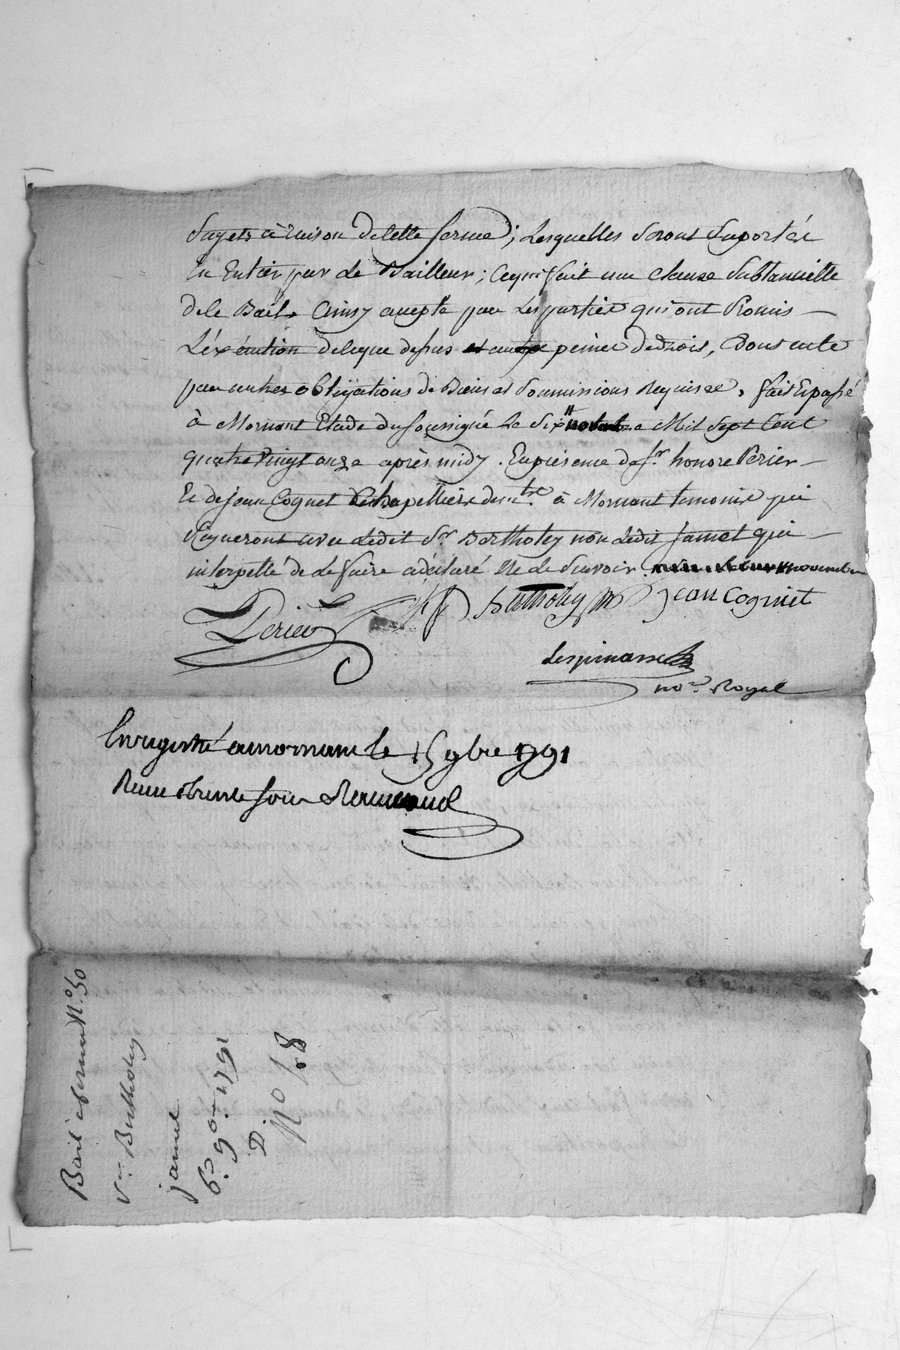 Sujets a raison de cette ferme; Lesquelles Seront Suportés
En Entier par Le Bailleur; Ce qui fait une Clause Substancielle
de le Bail. Ainsy accepté par Les parties qui ont Promis
L'éxécution de ce que dessus peines de droit, Dont acte
par autres obligations de Biens et Soumissions Requises, fait Et passé
à Mornant Etude du Soussigné Le Six Mil Sept Cent
quatre Vingt onze après midy. En présence de Sr honoré Perier
Et de Jean Cognet Chapellier demt. à Mornant temoins qui
Signeront avec Ledit Sr Bertholey non Ledit Jamet qui
interpellé de Le faire a déclaré Ne Le Savoir novembre
Perier Bertholey Jean Cognet
Lespinasse
nore. Royal
Enregistré a mornant le 15 9bre 1791
Reçu
Bail a ferme No. 50
Vve Bertholey
jamet
6. 9bre 1791
D
No 18